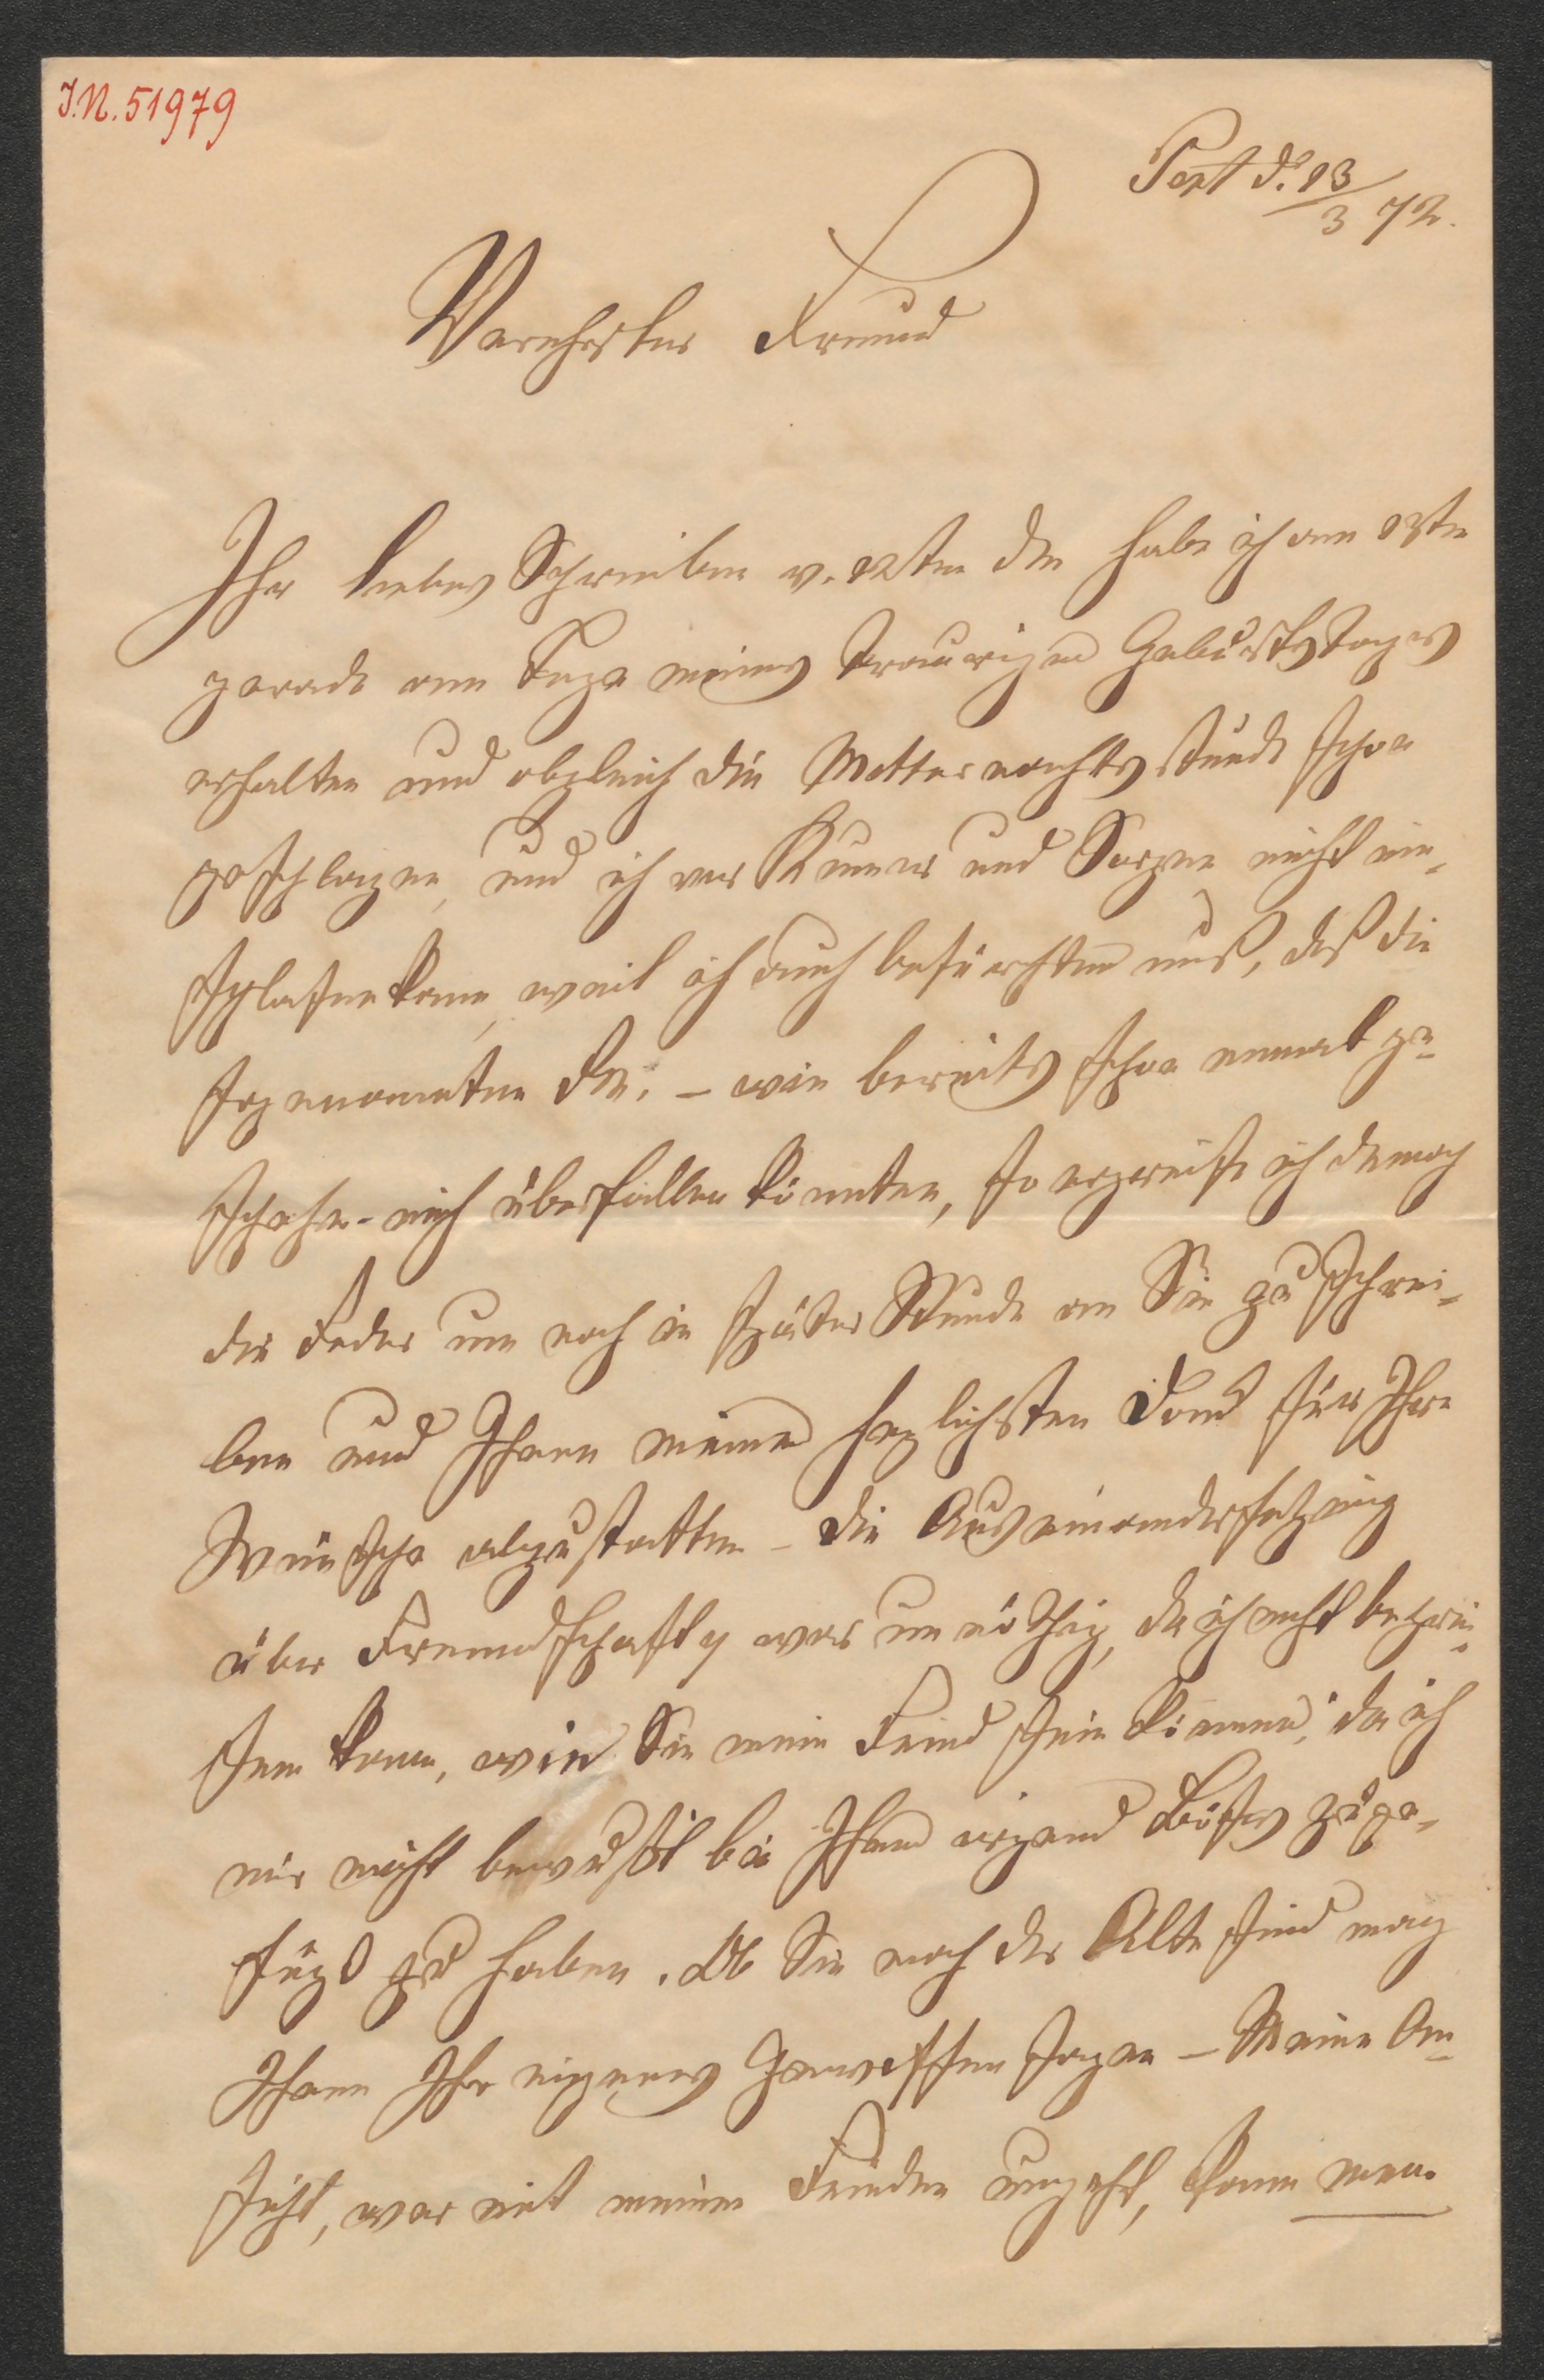 I.N. 51979
Pest d. 13/3 72.
Verehrter Freund
Ihr liebes Schreiben v. 12ten dM habe ich am 13ten
gerade am Tage meines traurigen Geburtstages
erhalten und obgleich die Mitternachtsstunde schon
geschlagen, und ich vor Kumer und Sorgen nicht ein-
schlafen kann, weil ich auch befürchten muß, daß die
sogenannten – wie bereits schon einmal ge-
schehen – mich überfallen könnten, so ergreife ich dennoch
die Feder um noch in später Stunde an Sie zu schrei-
ben und Ihnen meinen herzlichsten Dank für Ihre
Wünsche abzustatten – die Auseinandersetzung
über Freundschaft war unnöthig, da ich nicht begrei-
fen kann, wie Sie mein Feind sein können, da ich
mir nicht bewußt bin Ihnen irgend Böses zuge-
fügt zu haben. Ob Sie noch der Alte sind mag
Ihnen Ihr eigenes Gewissen sagen – Meine An-
sicht, wer mit meinen Feinden umgeht, kann mein